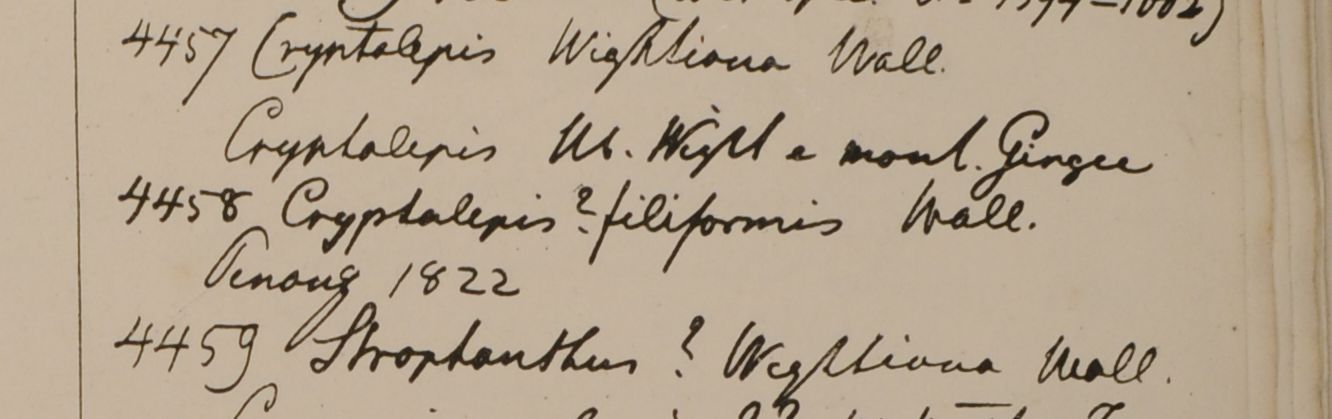 4457 Cryptolepis Wightiana Wall.
Cryptolepis Hb. Wight e mont. Gingee
4458 Cryptolepis? filiformis Wall.
Penang 1822
4459 Strophanthus? Wightiana Wall.